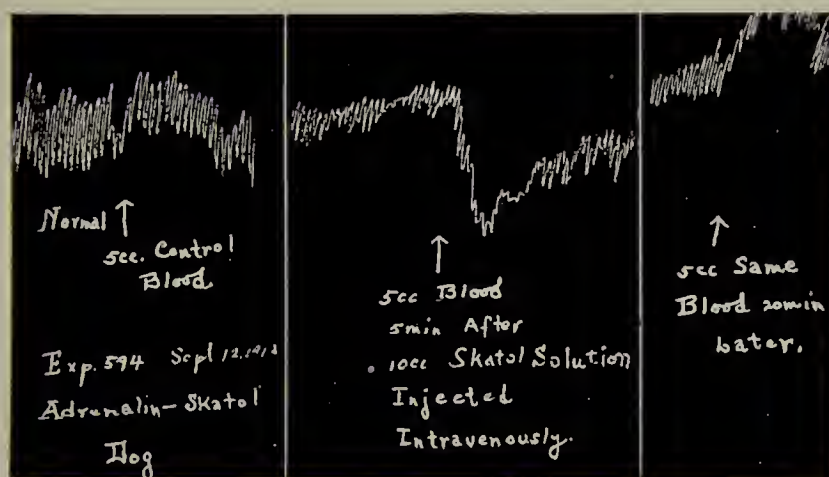 Normal ↑
5cc. Control
Blood
Exp. 594 Sept 12,
Adrenalin-Skatol
Dog
↑
5cc Blood
5min After
10cc Skatol Solution
Injected
Intravenously.
↑
5cc Same
Blood 20min
Later.